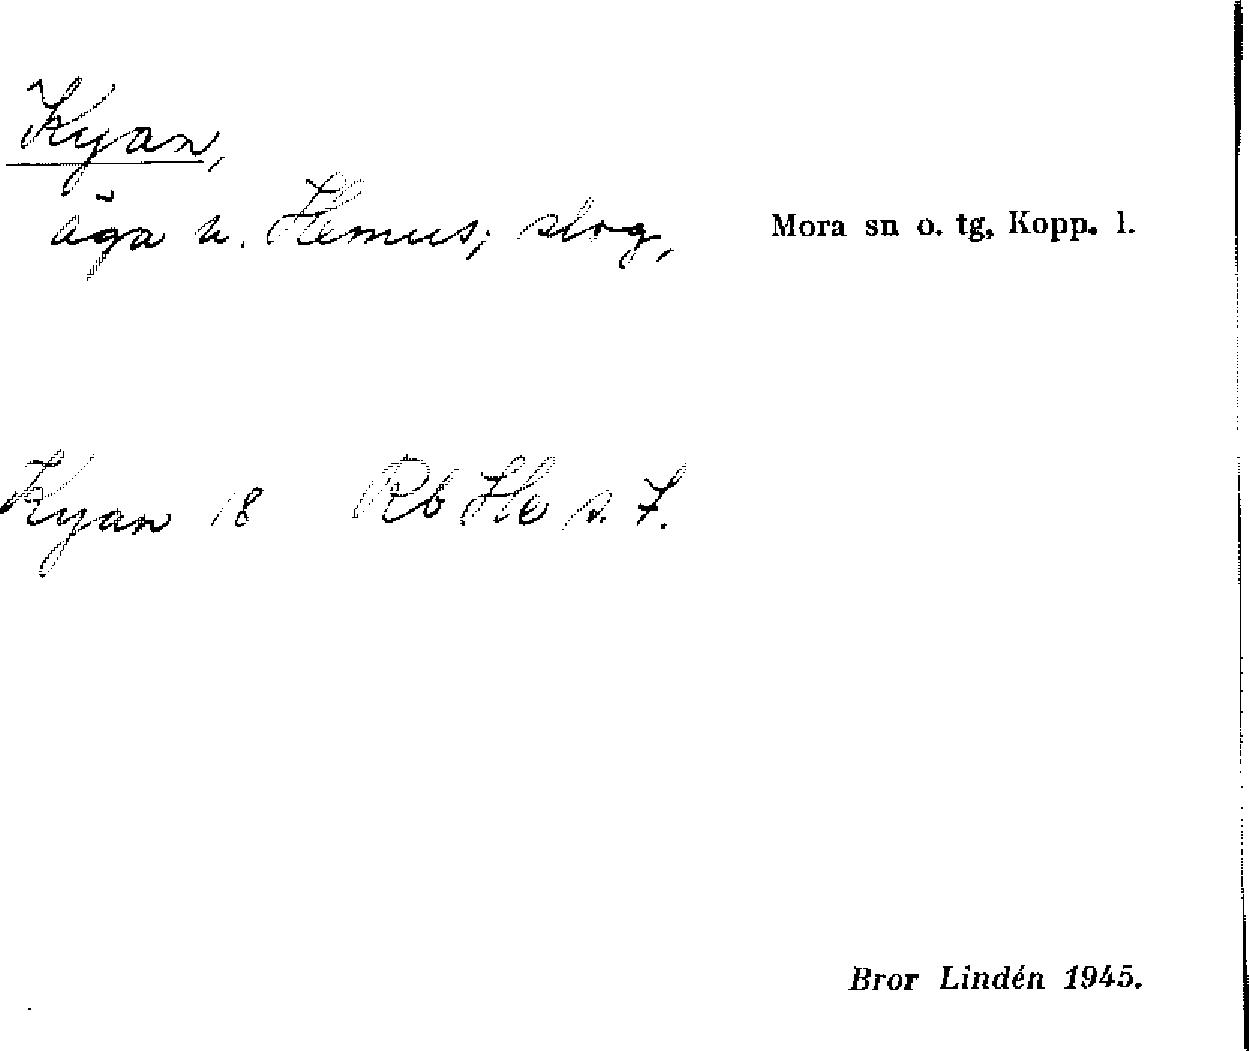 Kyan,
äga u. Hemus; slog, Mora sn o. tg, Kopp. l.
Kyan 18 Rb He s. 7.
Bror Lindén 1945.